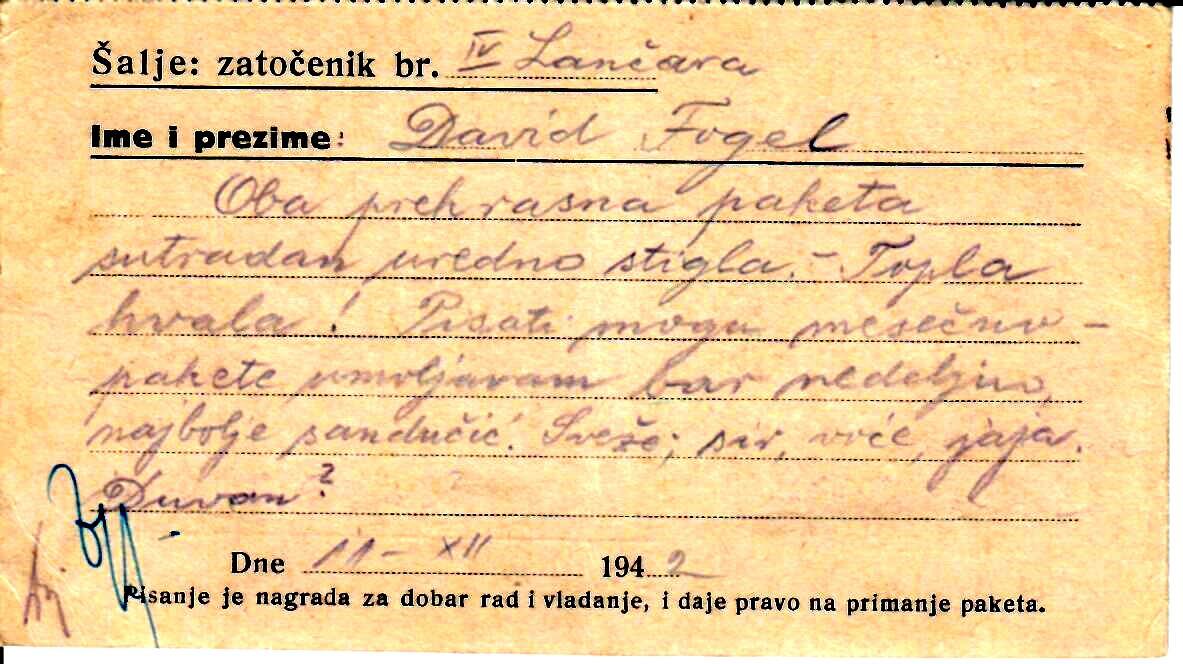 Šalje: zatočenik br. IV Lančara
Ime i prezime: David Fogel
Oba prekrasna paketa
sutradan uredno stigla. - Topla
hvala! Pisati mogu mesečno -
pakete umoljavam bar nedeljno,
najbolje sandučić. Sveže; sir, voće, jaja.
Duvan?
Dne 11 - XII 1942
Pisanje je nagrada za dobar rad i vladanje, i daje pravo na primanje paketa.